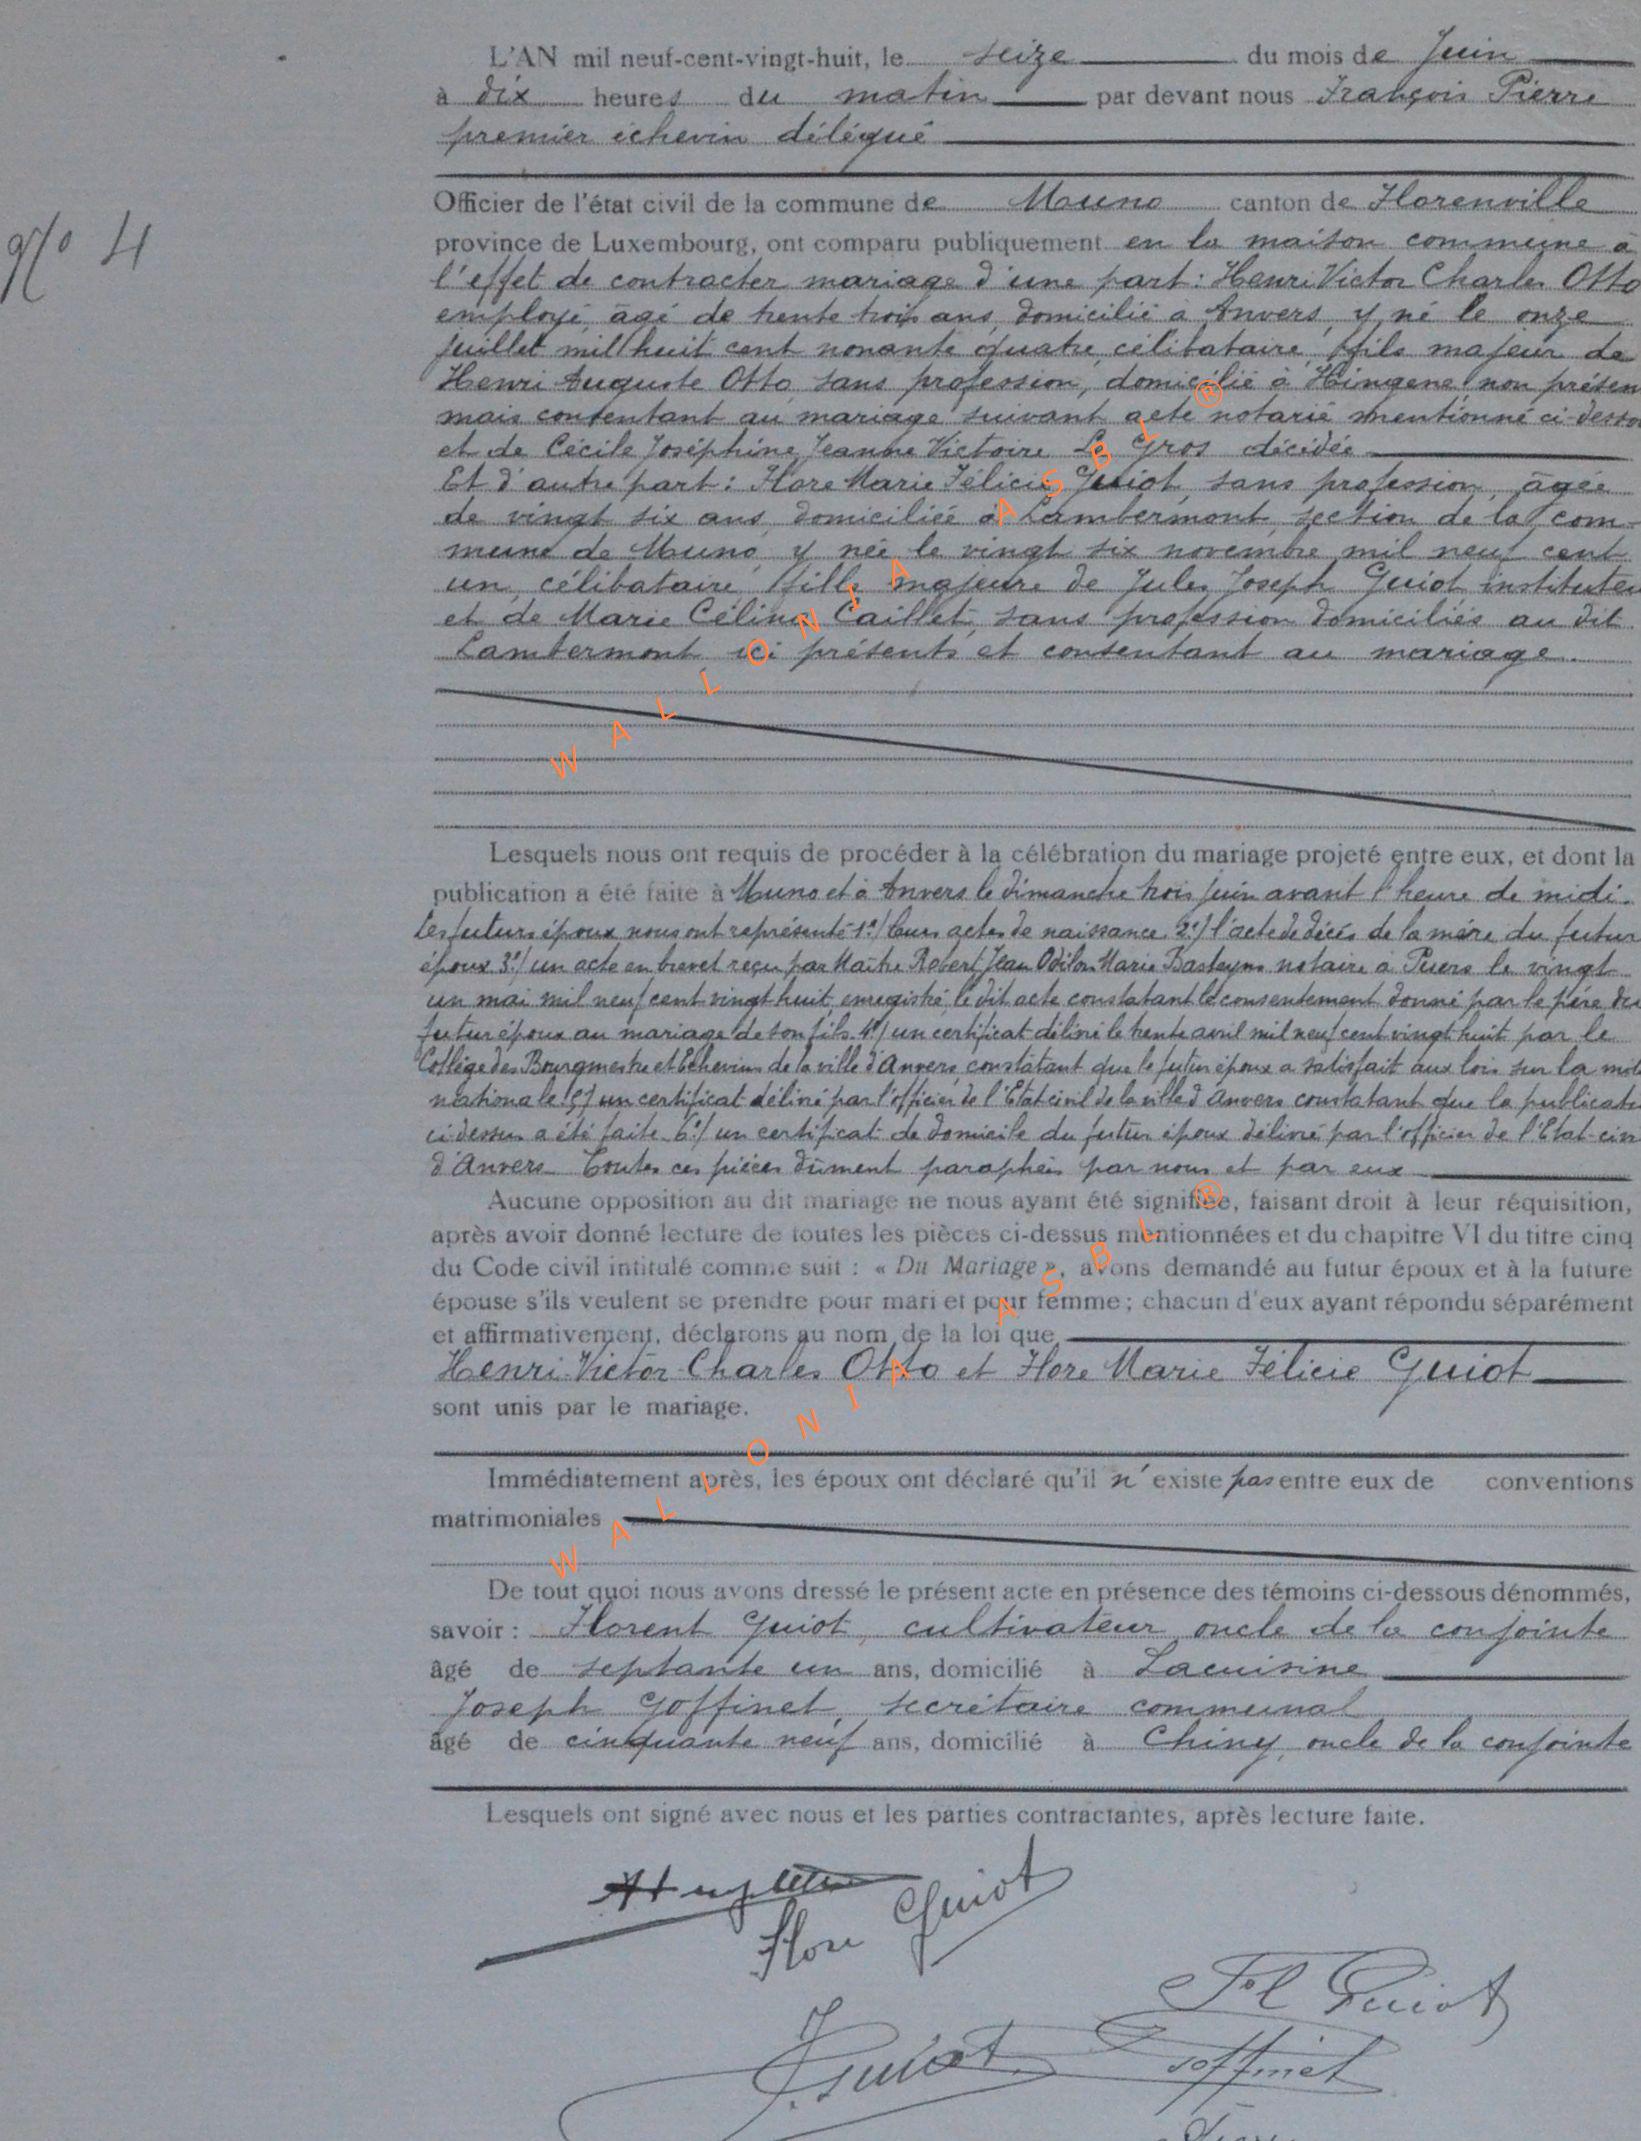 L'AN mil neuf-cent-vingt-huit, le seize du mois de Juin
à dix heures du matin par devant nous François Pierre
premier échevin délégué
Officier de l'état civil de la commune de Muno canton de Florenville
N° 4
province de Luxembourg, ont comparu publiquement en la maison commune à
l'effet de contracter mariage d'une part : Henri Victor Charles Otto
employé, âgé de trente trois ans, domicilié à Anvers, y né le onze
juillet mil huit cent nonante quatre, célibataire, fils majeur de
Henri Auguste Otto, sans profession, domicilié à Hingene, non présen
mais consentant au mariage suivant acte notarié mentionné ci-desso
et de Cécile Joséphine Jeanne Victoire Le Gros décédée
Et d'autre part : Flore Marie Félicie Guiot, sans profession, âgée
de vingt six ans, domiciliée à Lambermont section de la com-
mune de Muno, y née le vingt six novembre mil neuf cent
un, célibataire, fille majeure de Jules Joseph Guiot instituteu
et de Marie Célina Caillet, sans profession domiciliés au dit
Lambermont ici présents et consentant au mariage.
Lesquels nous ont requis de procéder à la célébration du mariage projeté entre eux, et dont la
publication a été faite à Muno et à Anvers le dimanche trois juin avant l'heure de midi.
Les futurs époux nous ont représenté 1°/ leurs actes de naissance 2°/ l'acte de décès de la mère du futur
époux 3°/ un acte en brevet reçu par Maître Robert Jean Odilon Marie notaire à Puers le vingt
un mai mil neuf cent vingt huit, enregistré, le dit acte constatant le consentement donné par le père du
futur époux au mariage de son fils. 4°/ un certificat délivré le trente avril mil neuf cent vingt huit par le
Collège des Bourgmestre et Echevins de la ville d'Anvers, constatant que le futur époux a satisfait aux lois sur la mili
nationale. 5°/ un certificat délivré par l'officier de l'Etat-civil de la ville d'Anvers constatant que la publicati
ci-dessus a été faite 6°/ un certificat de domicile du futur époux délivré par l'officier de l'Etat-civi
d'Anvers Toutes ces pièces dûment paraphées par nous et par eux
Aucune opposition au dit mariage ne nous ayant été signifiée, faisant droit à leur réquisition,
après avoir donné lecture de toutes les pièces ci-dessus mentionnées et du chapitre VI du titre cinq
du Code civil intitulé comme suit : « Du Mariage », avons demandé au futur époux et à la future
épouse s'ils veulent se prendre pour mari et pour femme ; chacun d'eux ayant répondu séparément
et affirmativement, déclarons au nom de la loi que
Henri Victor Charles Otto et Flore Marie Félicie Guiot
sont unis par le mariage.
Immédiatement après, les époux ont déclaré qu'il n'existe pas entre eux de conventions
matrimoniales
De tout quoi nous avons dressé le présent acte en présence des témoins ci-dessous dénommés,
savoir : Florent Guiot, cultivateur, oncle de la conjointe
âgé de septante un ans, domicilié à Lacuisine
Joseph Goffinet, secrétaire communal
âgé de cinquante neuf ans, domicilié à Chiny, oncle de la conjointe
Lesquels ont signé avec nous et les parties contractantes, après lecture faite.
Flore Guiot
Fl Guiot
J. Guiot
Goffinet
WALLONIA ASBL ®
WALLONIA ASBL ®